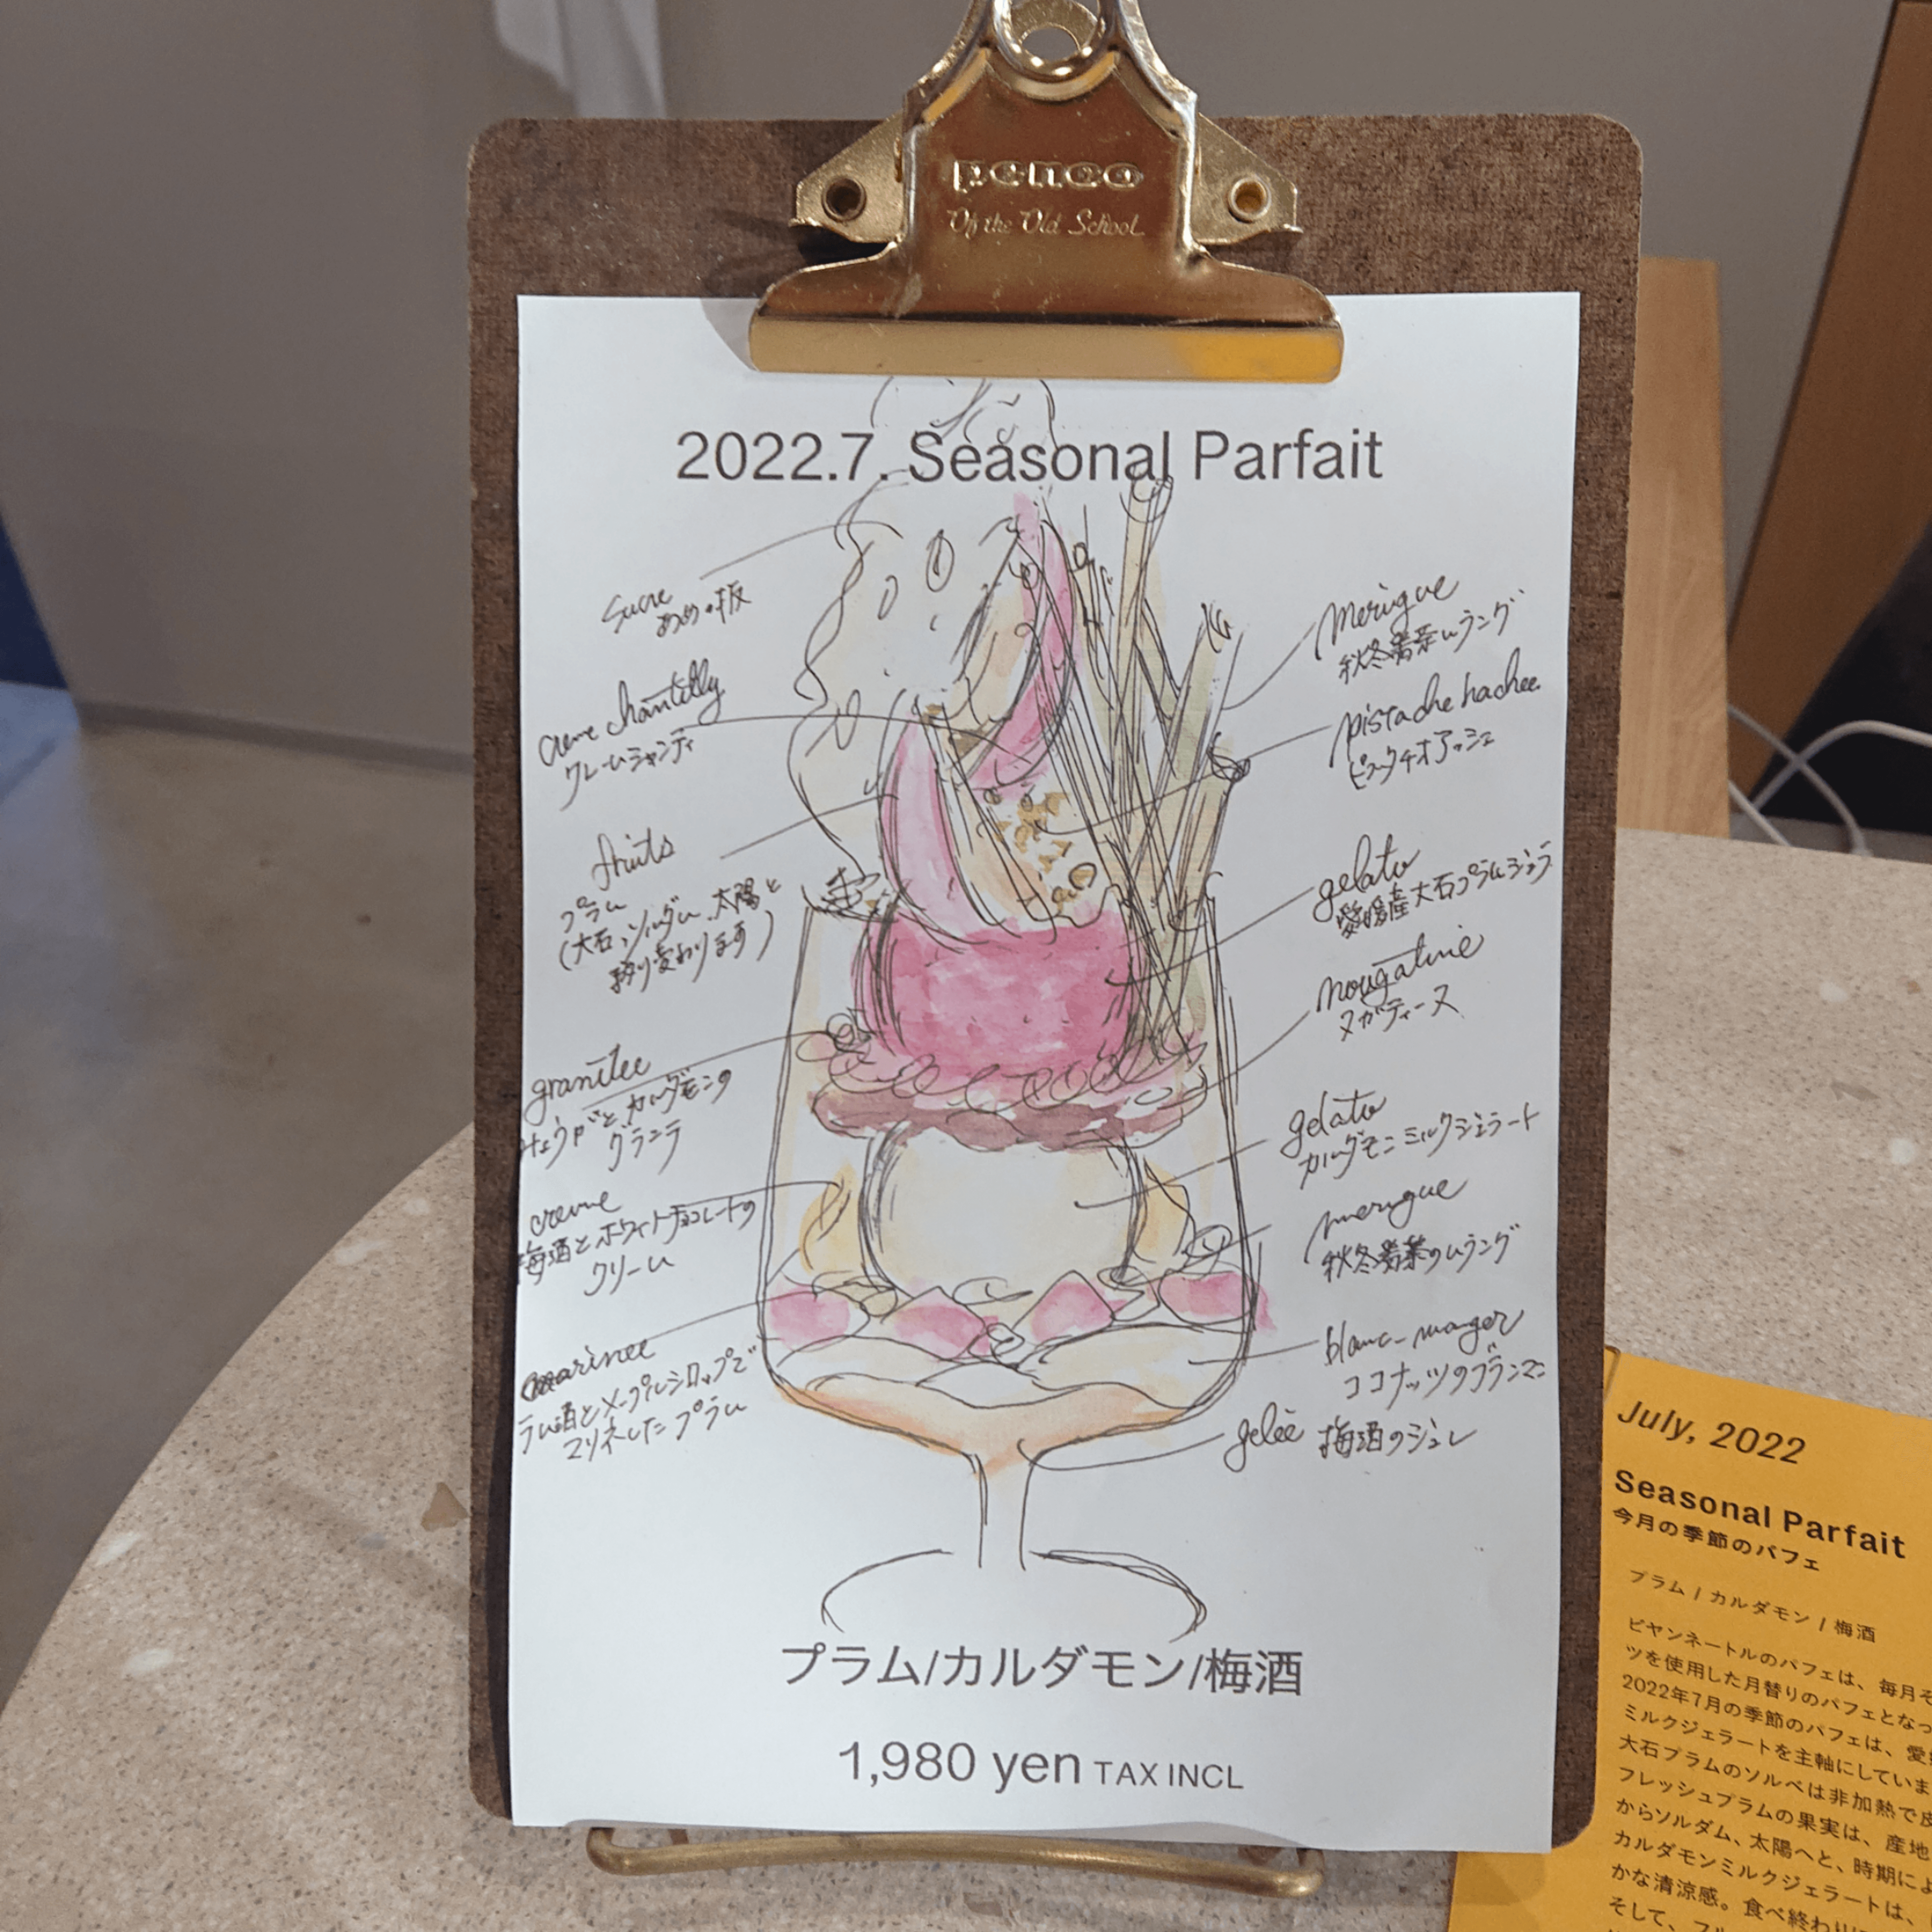 penco
Of the Old School
2022.7. Seasonal Parfait
sucre
あめの板
creme chantilly
クレームシャンティ
fruits
プラム
(大石、ソルダム、太陽と
移り変わります)
granitee
カルダモンの
グラニテ
creme
梅酒とホワイトチョコレートの
クリーム
marinee
ラム酒とメープルシロップで
マリネしたプラム
meringue
秋冬番茶ムラング
pistache hachee
ピスタチオアッシェ
gelato
愛媛産大石プラムジェラ
nougatine
ヌガティーヌ
gelato
カルダモンミルクジェラート
meringue
秋冬番茶のムラング
blanc-manger
ココナッツのブランマンジェ
gelée 梅酒のジュレ
プラム/カルダモン/梅酒
1,980 yen TAX INCL
July, 2022
Seasonal Parfait
今月の季節のパフェ
プラム / カルダモン / 梅酒
ピヤンネートルのパフェは、毎月そ
ツを使用した月替りのパフェとなっ
2022年7月の季節のパフェは、愛
ミルクジェラートを主軸にしていま
大石プラムのソルベは非加熱で皮
フレッシュプラムの果実は、産地
からソルダム、太陽へと、時期によ
カルダモンミルクジェラートは、
かな清涼感。食べ終わり
そして、フル